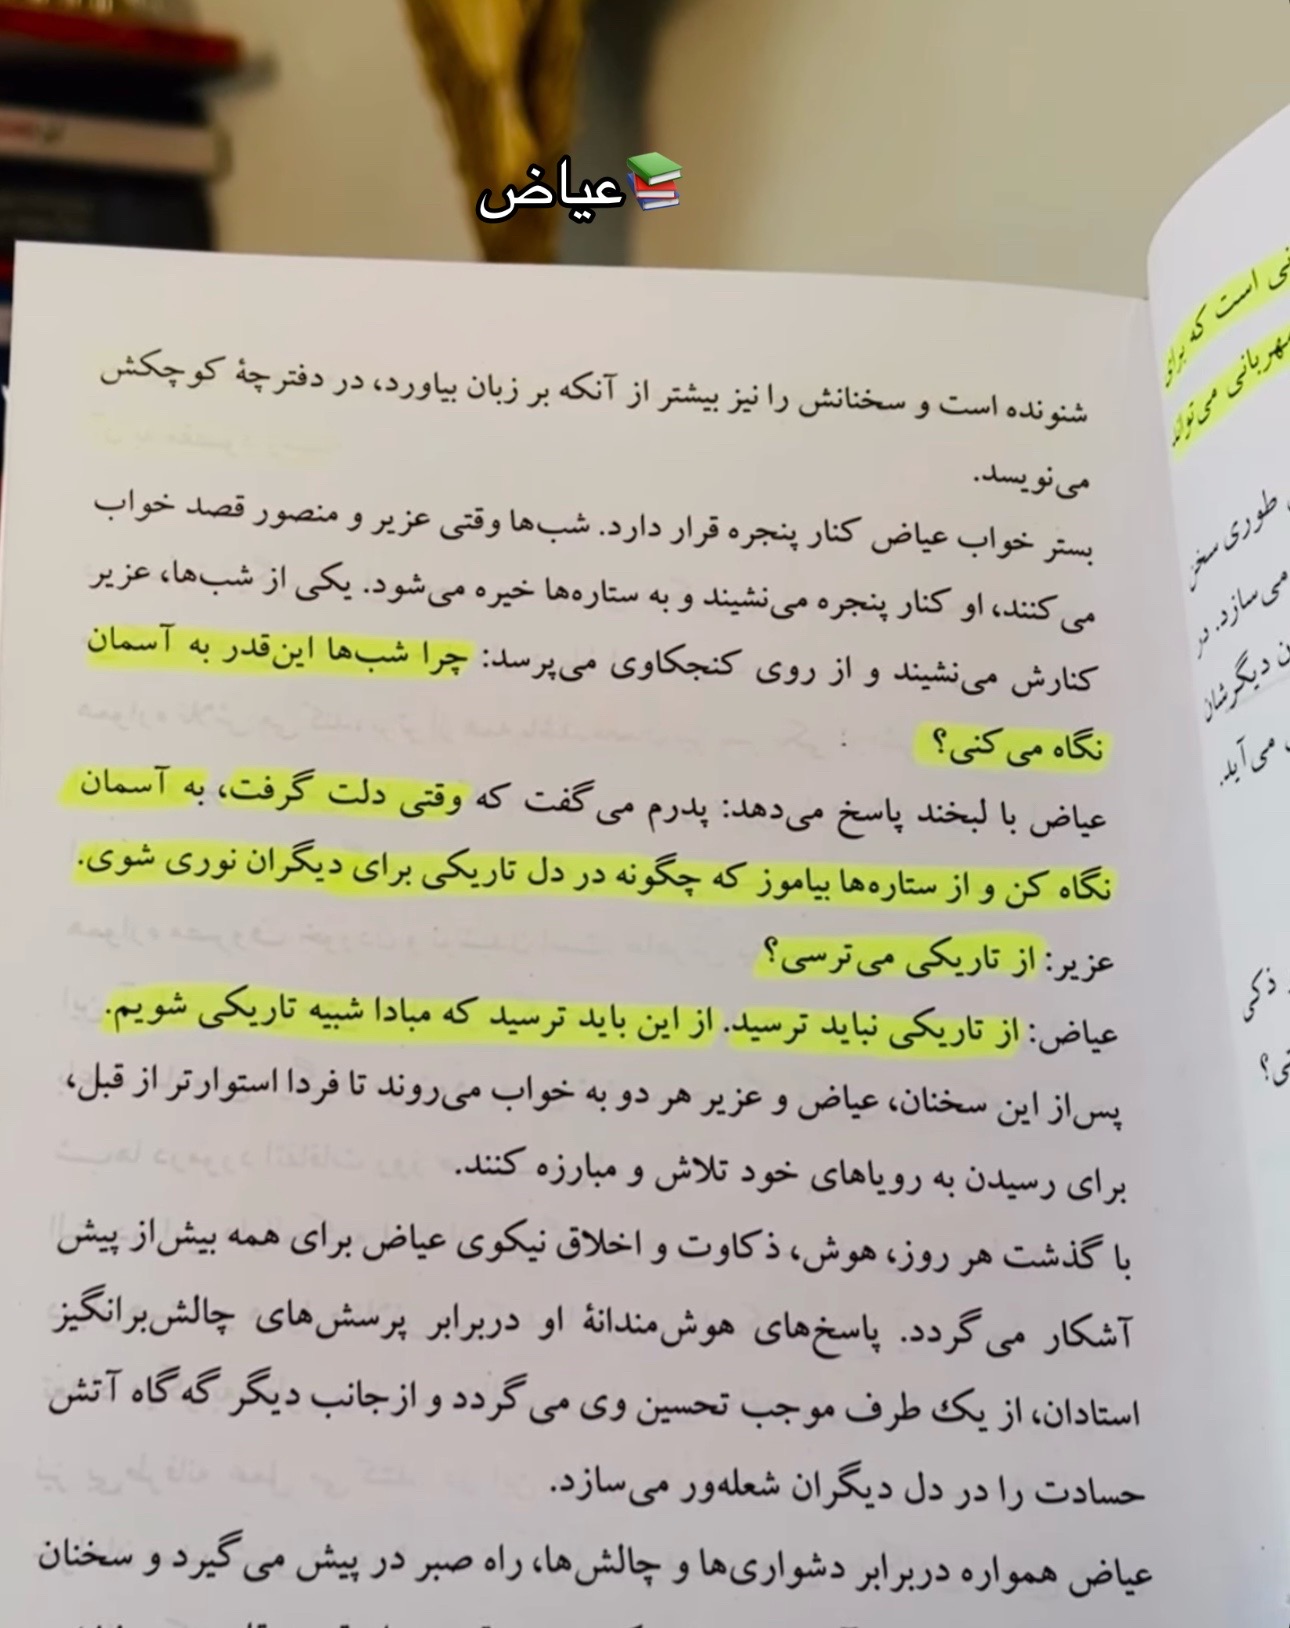 عیاض
شنونده است و سخنانش را نیز بیشتر از آنکه بر زبان بیاورد، در دفترچهٔ کوچکش
می‌نویسد.
بستر خواب عیاض کنار پنجره قرار دارد. شب‌ها وقتی عزیر و منصور قصد خواب
می‌کنند، او کنار پنجره می‌نشیند و به ستاره‌ها خیره می‌شود. یکی از شب‌ها، عزیر
کنارش می‌نشیند و از روی کنجکاوی می‌پرسد: چرا شب‌ها این‌قدر به آسمان
نگاه می‌کنی؟
عیاض با لبخند پاسخ می‌دهد: پدرم می‌گفت که وقتی دلت گرفت، به آسمان
نگاه کن و از ستاره‌ها بیاموز که چگونه در دل تاریکی برای دیگران نوری شوی.
عزیر: از تاریکی می‌ترسی؟
عیاض: از تاریکی نباید ترسید. از این باید ترسید که مبادا شبیه تاریکی شویم.
پس‌از این سخنان، عیاض و عزیر هر دو به خواب می‌روند تا فردا استوارتر از قبل،
برای رسیدن به رویاهای خود تلاش و مبارزه کنند.
با گذشت هر روز، هوش، ذکاوت و اخلاق نیکوی عیاض برای همه بیش‌از پیش
آشکار می‌گردد. پاسخ‌های هوش‌مندانهٔ او دربرابر پرسش‌های چالش‌برانگیز
استادان، از یک طرف موجب تحسین وی می‌گردد و ازجانب دیگر گه‌گاه آتش
حسادت را در دل دیگران شعله‌ور می‌سازد.
عیاض همواره دربرابر دشواری‌ها و چالش‌ها، راه صبر در پیش می‌گیرد و سخنان
است که برای
مهربانی می‌تواند
طوری سخن
می‌سازد. در
دیگرشان
می‌آید.
ذکی